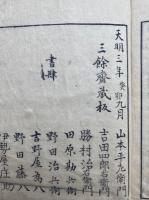 天明三年癸卯九月
三餘齋蔵板
書肆
山本平左衛門
吉田四郎右衛門
勝村治右衛門
田原勘兵衛
野田治兵衛
吉野屋為八
野田藤八